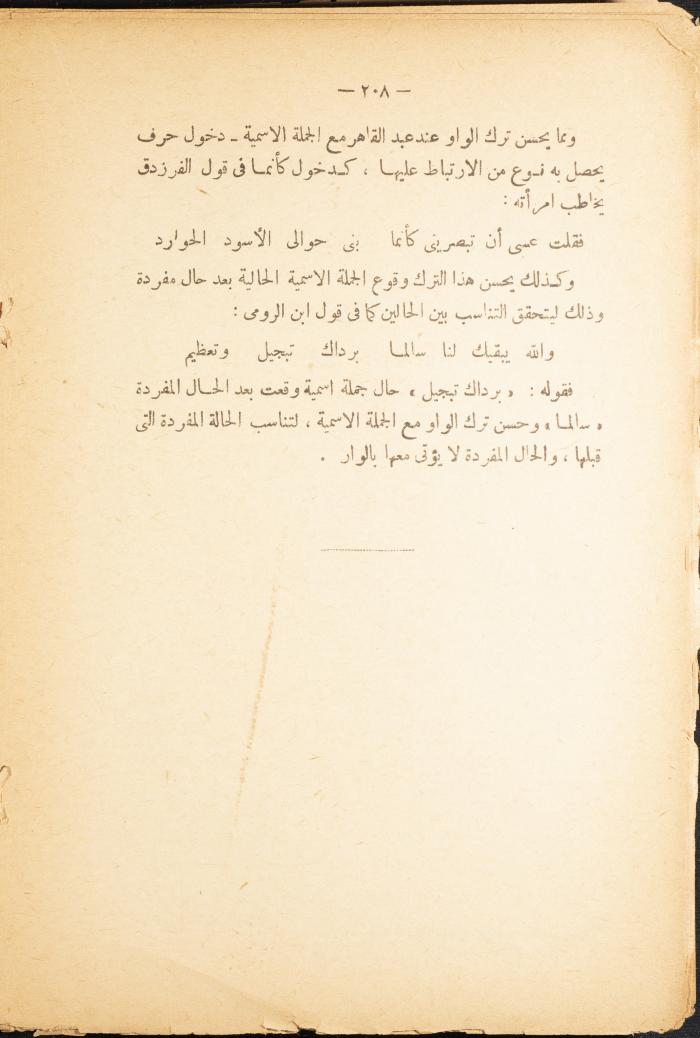 — ٢٠٨ —
ومما يحسن ترك الواو عند عبد القاهر مع الجملة الاسمية ـ دخول حرف
يحصل به نوع من الارتباط عليها ، كدخول كأنما فى قول الفرزدق
يخاطب امرأته :
فقلت عسى أن تبصرينى كأنما بنى حوالى الأسود الحوارد
وكذلك يحسن هذا الترك وقوع الجملة الاسمية الحالية بعد حال مفردة
وذلك ليتحقق التناسب بين الحالين كما فى قول ابن الرومى :
والله يبقيك لنا سالما برداك تبجيل وتعظيم
فقوله : « برداك تبجيل » حال جملة اسمية وقعت بعد الحال المفردة
« سالما » وحسن ترك الواو مع الجملة الاسمية ، لتناسب الحالة المفردة التى
قبلها ، والحال المفردة لا يؤتى معها بالوار .